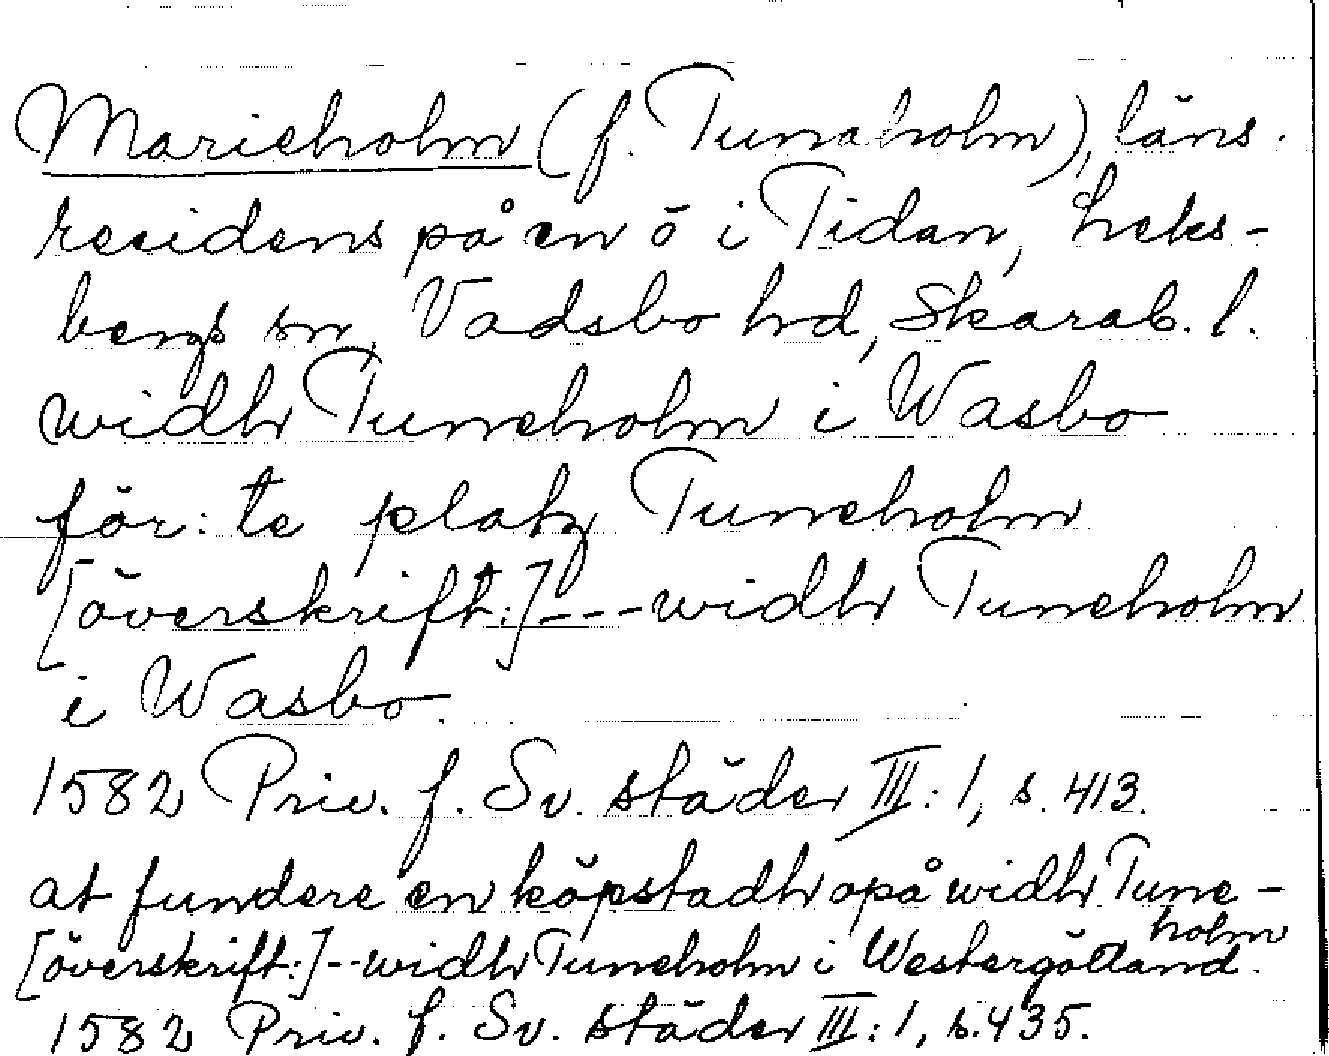 Marieholm (f. Tunaholm), läns-
residens på en ö i Tidan, Leks-
bergs sn, Vadsbo hd, Skarab. l.
widh Tuneholm i Wasbo
för: te platz Tuneholm
[överskrift:]---widh Tuneholm
i Wasbo.
1582 Priv. f. Sv. städer III: 1, s. 413.
at fundere en köpstadh opå widh Tune-
holm
[överskrift:]--widh Tuneholm i Westergötland.
1582 Priv. f. Sv. städer III: 1, s. 435.